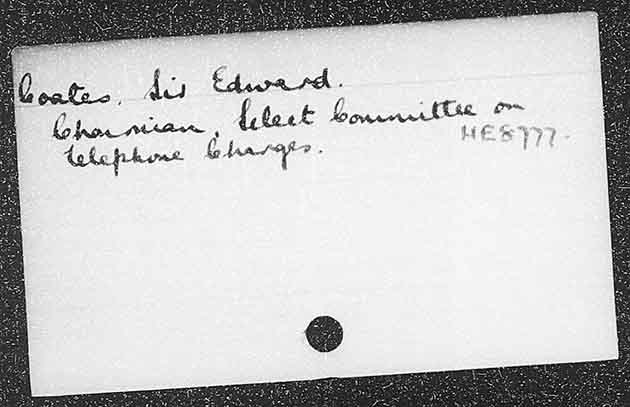 Coates, Sir Edward.
Chairman, Select Committee on
Telephone Charges.
HE8777.